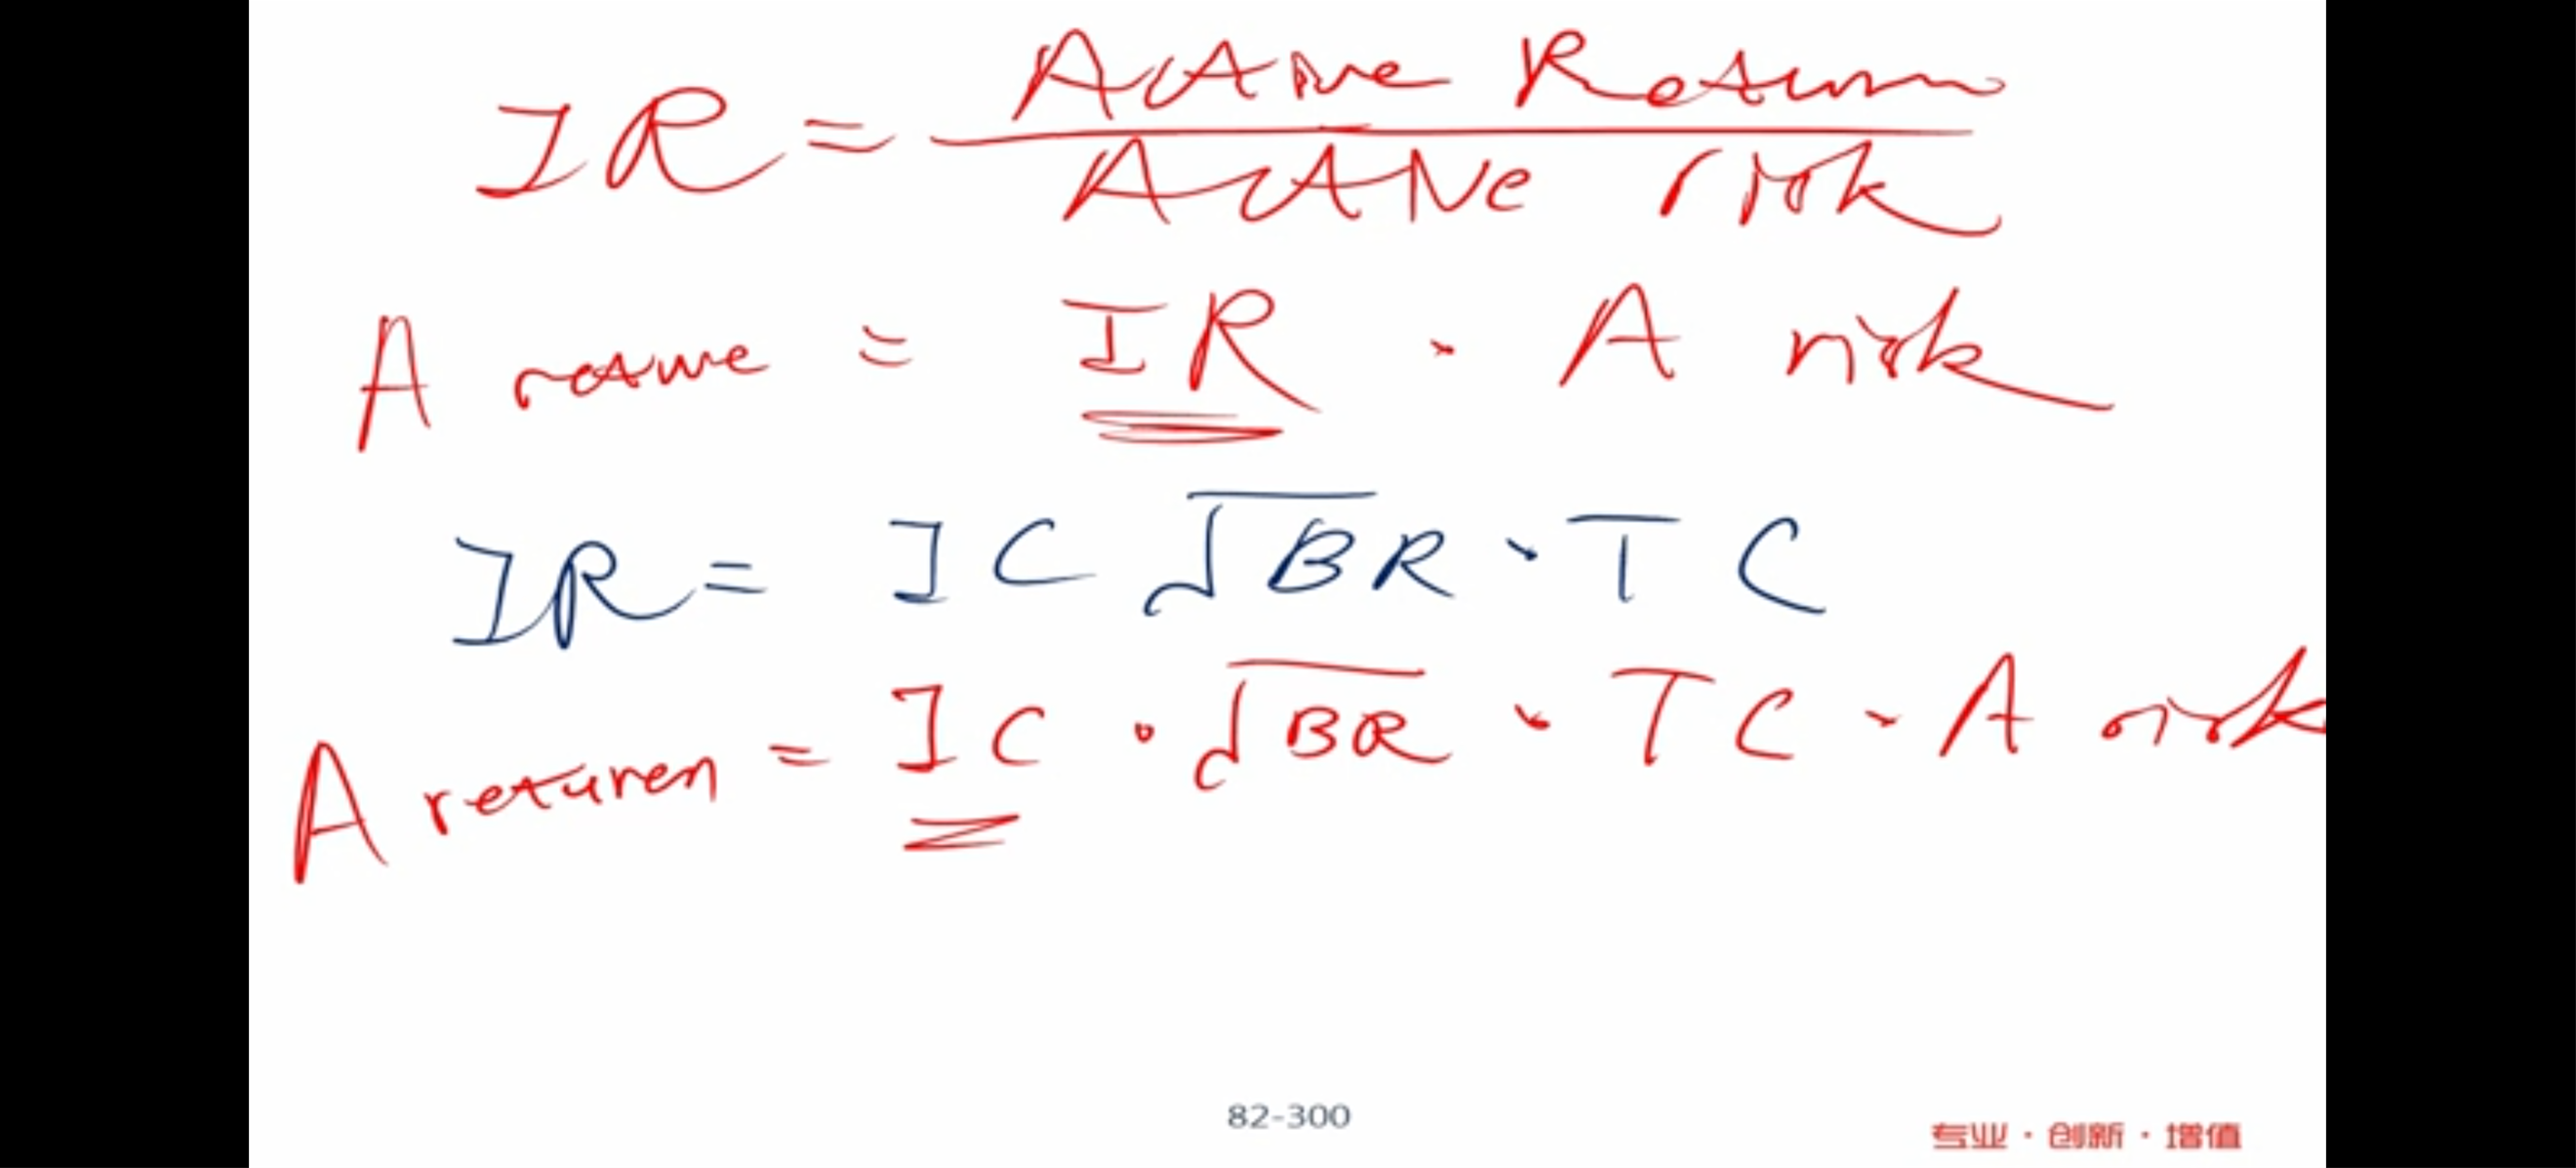 IR = Active Return / Active risk
A = IR · A risk
IR = IC √BR · TC
A returen = IC · √BR · TC · A risk
82-300
专业 · 创新 · 增值